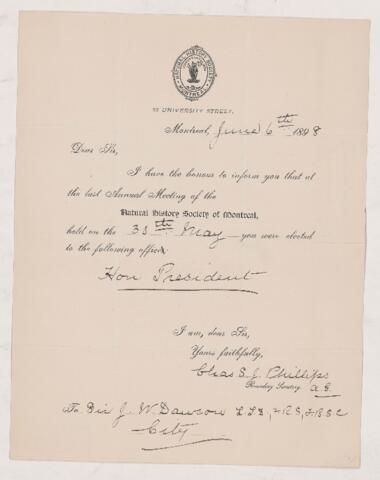 NATURAL HISTORY SOCIETY
MONTREAL
32 UNIVERSITY STREET.
Montreal, June 6th 1898
Dear Sir,
I have the honour to inform you that at
the last Annual Meeting of the
Natural History Society of Montreal,
held on the 30th May you were elected
to the following office.
Hon President
I am, dear Sir,
Yours faithfully,
Chas S. J. Phillips
Recording Secretary.
To Sir J. W. Dawson LLD, FRS, FRSC
City